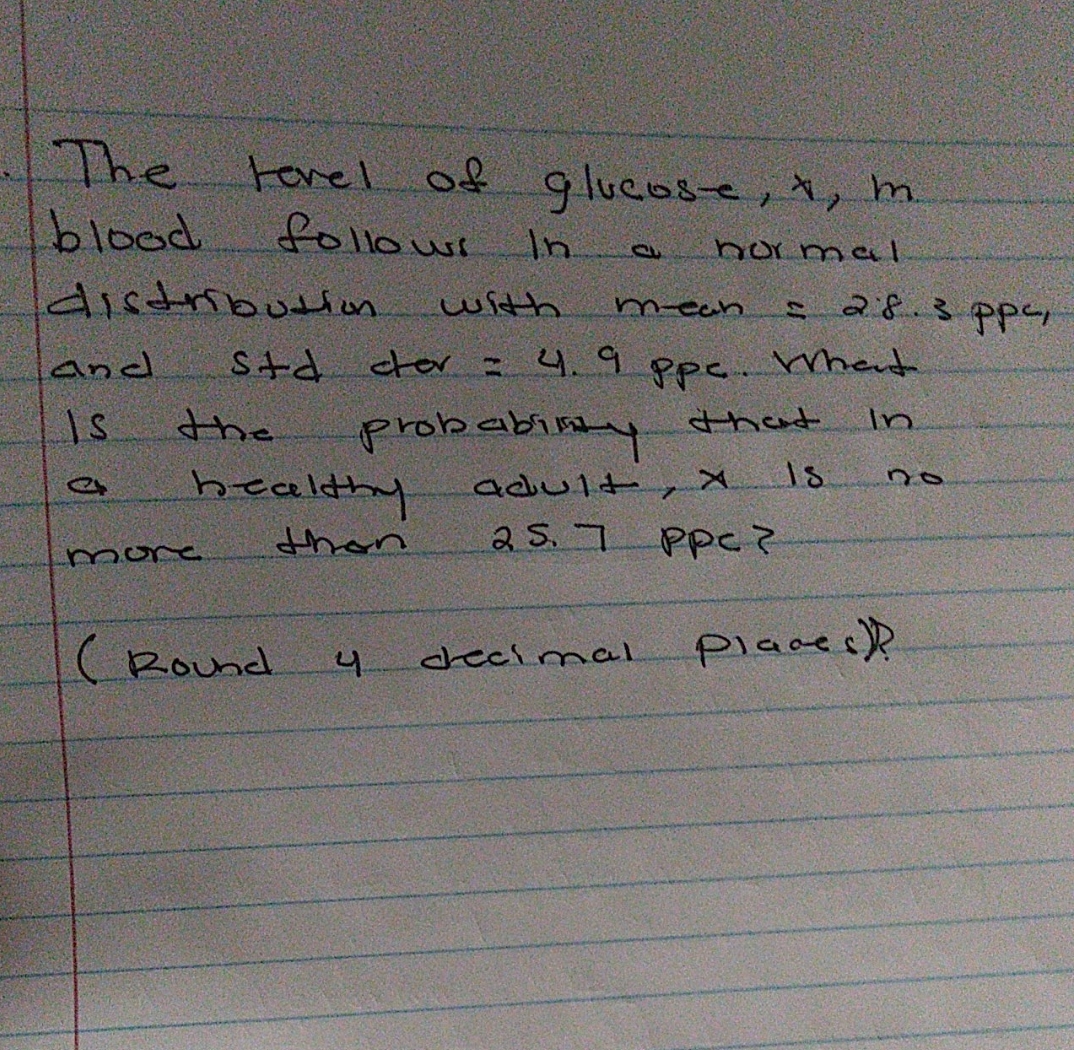 The level of glucose, x, in
blood follows in a normal
distribution with mean = 28.3 ppc,
and std dev = 4.9 ppc. What
is the probability that in
a healthy adult, x is no
more than 25.7 ppc?
(Round 4 decimal places)?